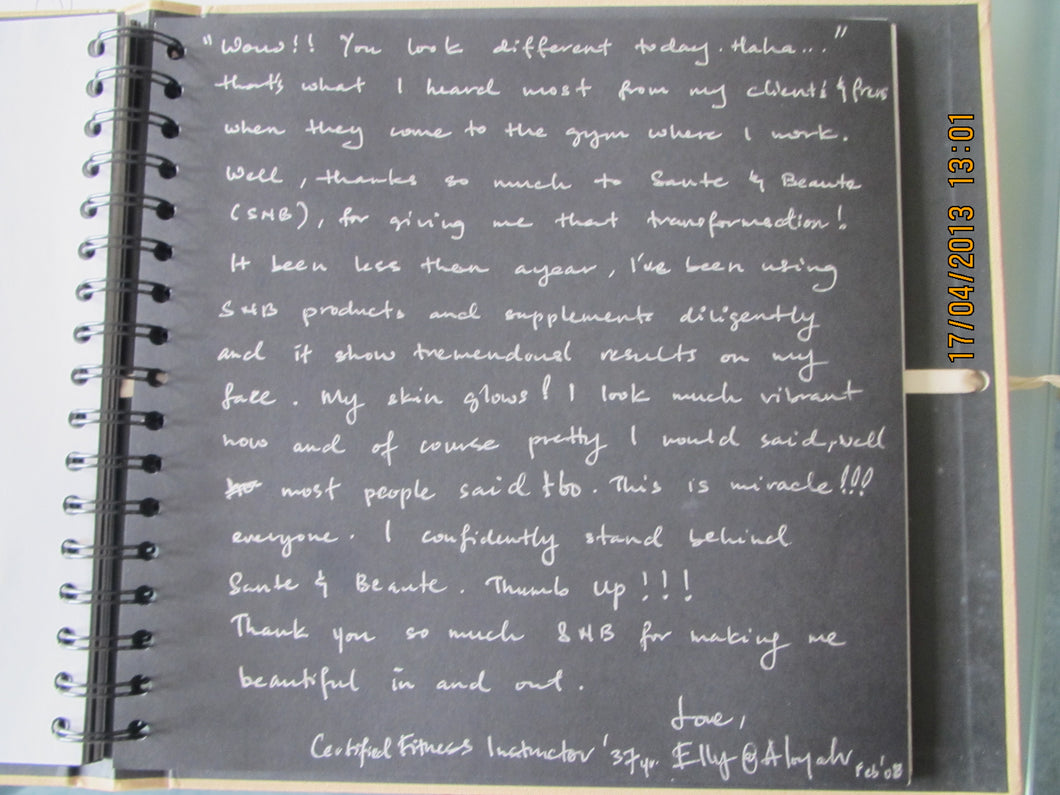 "Wow!! You look different today. Haha..."
that's what I heard most from my clients &
when they come to the gym where I work.
Well, thanks so much to Sante & Beaute
(SNB), for giving me that transformation!
It been less then ayear, I've been using
SNB products and supplements diligently
and it show tremendous results on my
face. My skin glows! I look much vibrant
now and of course pretty I would said, well
most people said too. This is miracle!!!
everyone. I confidently stand behind
Sante & Beaute. Thumb up!!!
Thank you so much SNB for making me
beautiful in and out.
Love,
Certified Fitness Instructor '37yr. Elly@ Feb'08
17/04/2013 13:01